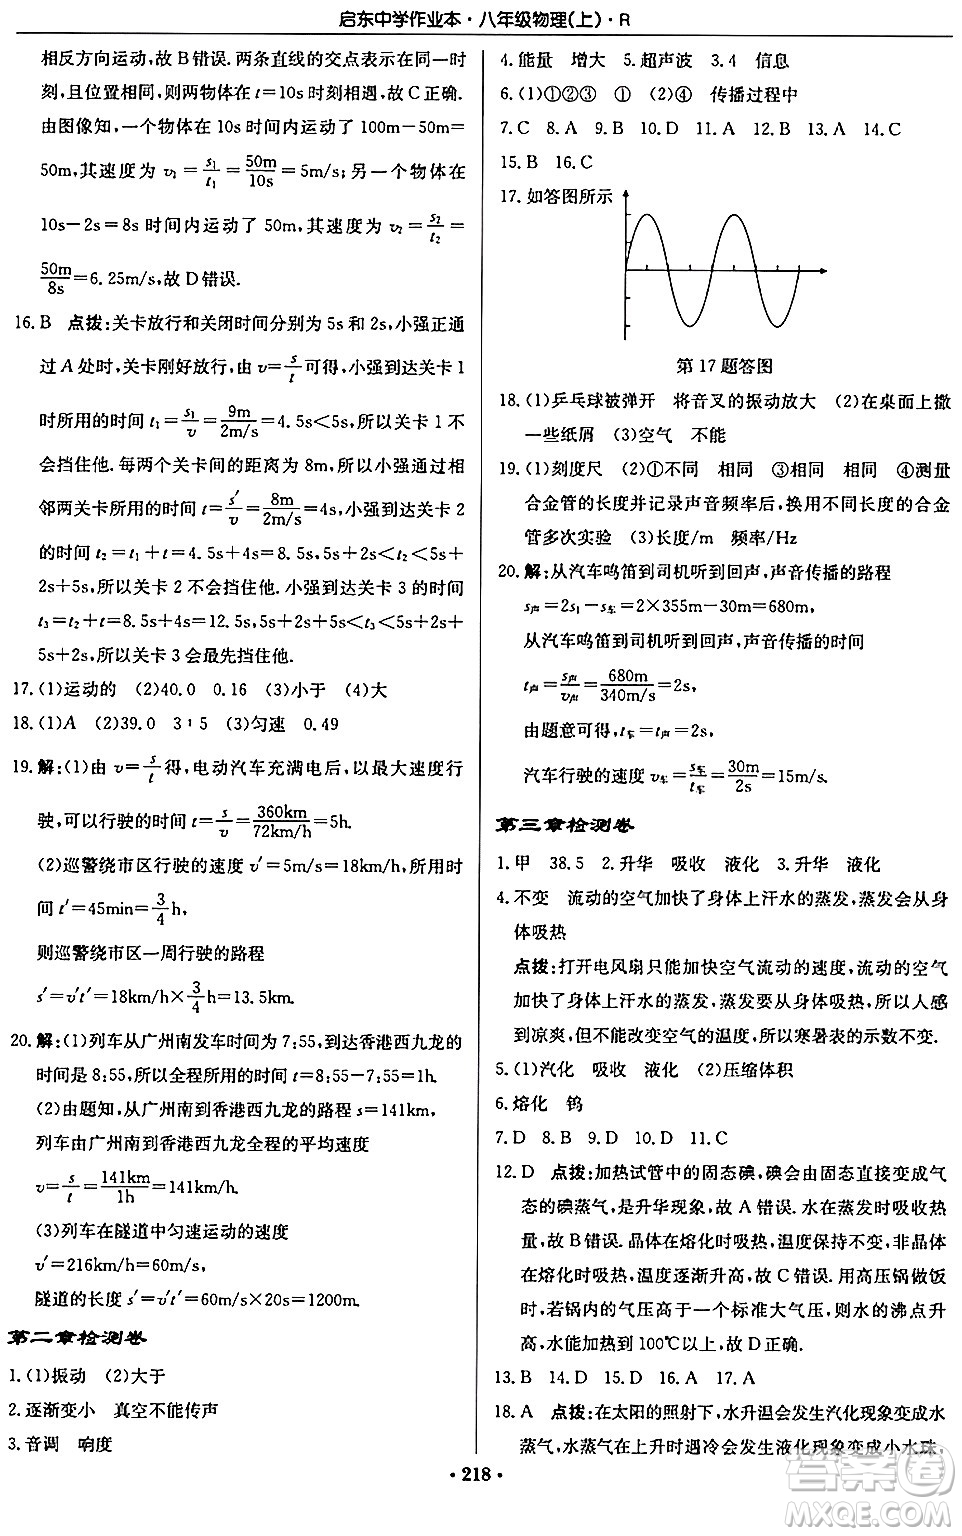 启东中学作业本·八年级物理(上)·R
相反方向运动,故B错误.两条直线的交点表示在同一时
刻,且位置相同,则两物体在t=10s时刻相遇,故C正确.
由图像知,一个物体在10s时间内运动了100m-50m=
50m,其速度为 v₁=s₁/t₁=50m/10s=5m/s;另一个物体在
10s-2s=8s时间内运动了50m,其速度为 v₂=s₂/t₂=
50m/8s=6.25m/s,故D错误.
16.B 点拨:关卡放行和关闭时间分别为5s和2s,小强正通
过A处时,关卡刚好放行,由v=s/t可得,小强到达关卡1
时所用的时间t₁=s₁/v=9m/2m/s=4.5s<5s,所以关卡1不
会挡住他.每两个关卡间的距离为8m,小强通过每两个相
邻两关卡所用的时间t=s′/v=8m/2m/s=4s,小强到达关卡2
的时间t₂=t₁+t=4.5s+4s=8.5s,因为5s+2s<t₂<5s+
2s+5s,所以关卡2不会挡住他.小强到达关卡3的时间
t₃=t₂+t=8.5s+4s=12.5s,因为5s+2s+5s<t₃<5s+2s+
5s+2s,所以关卡3会最先挡住他.
17.(1)运动的 (2)40.0 0.16 (3)小于 (4)大
18.(1)A (2)39.0 3∶5 (3)匀速 0.49
19.解:(1)由v=s/t得,电动汽车充满电后,以最大速度行
驶,可以行驶的时间t=s/v=360km/72km/h=5h.
(2)巡警绕市区行驶的速度v′=5m/s=18km/h,时
间t′=45min=3/4h,
则巡警绕市区一周行驶的路程
s′=v′t′=18km/h×3/4h=13.5km.
20.解:(1)列车从广州南发车时间为7:55,到达香港西九龙的
时间是8:55,所以全程所用的时间t=8:55-7:55=1h.
(2)由题知,从广州南到香港西九龙的路程s=141km,
列车由广州南到香港西九龙全程的平均速度
v=s/t=141km/1h=141km/h.
(3)列车在隧道中匀速运动的速度
v′=216km/h=60m/s,
隧道的长度s′=v′t′=60m/s×20s=1200m.
第二章检测卷
1.(1)振动 (2)大于
2.逐渐变小 真空不能传声
3.音调 响度
4.能量 增大 5.超声波 3.4 信息
6.(1)①②③ ① (2)④ 传播过程中
7.C 8.A 9.B 10.D 11.A 12.B 13.A 14.C
15.B 16.C
17.如答图所示
第17题答图
18.(1)乒乓球被弹开 将音叉的振动放大 (2)在桌面上撒
一些纸屑 (3)空气 不能
19.(1)刻度尺 (2)①不同 相同 ③相同 相同 ④测量
合金管的长度并记录声音频率后,换用不同长度的合金
管多次实验 (3)长度/m 频率/Hz
20.解:从汽车鸣笛到司机听到回声,声音传播的路程
s声=2s₁-s车=2×355m-30m=680m,
从汽车鸣笛到司机听到回声,声音传播的时间
t声=s声/v声=680m/340m/s=2s,
由题意可得,t车=t声=2s,
汽车行驶的速度v车=s车/t车=30m/2s=15m/s.
第三章检测卷
1.甲 38.5 2.升华 吸收 液化 3.升华 液化
4.不变 流动的空气加快了身体上汗水的蒸发,蒸发会从身
体吸热
点拨:打开电风扇只能加快空气流动的速度,流动的空气
加快了身体上汗水的蒸发,蒸发要从身体吸热,所以人感
到凉爽,但不能改变空气的温度,所以寒暑表的示数不变.
5.(1)汽化 吸收 液化 (2)压缩体积
6.熔化 钨
7.D 8.B 9.D 10.D 11.C
12.D 点拨:加热试管中的固态碘,碘会由固态直接变成气
态的碘蒸气,是升华现象,故A错误.水在蒸发时吸收热
量,故B错误.晶体在熔化时吸热,温度保持不变,非晶体
在熔化时吸热,温度逐渐升高,故C错误.用高压锅做饭
时,若锅内的气压高于一个标准大气压,则水的沸点升
高,水能加热到100℃以上,故D正确.
13.B 14.D 15.C 16.A 17.A
18.A 点拨:在太阳的照射下,水升温会发生汽化现象变成水
蒸气,水蒸气在上升时遇冷会发生液化现象变成小水珠,
·218·
答案圈
MXQE.COM